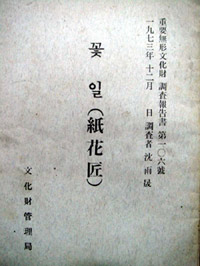 重要無形文化財 調査報告書 第一〇六號
一九七三年 十二月 日 調査者 沈雨晟
꽃 일(紙花匠)
文化財管理局